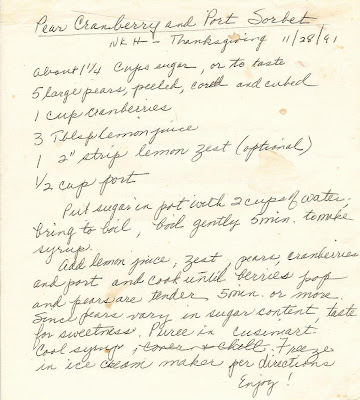 Pear Cranberry and Port Sorbet
NKH - Thanksgiving 11/28/91
about 1 1/4 Cups sugar, or to taste
5 large pears, peeled, cored and cubed
1 cup cranberries
3 Tblsp lemon juice
1 2" strip lemon zest (optional)
1/2 cup port
Put sugar in pot with 2 cups of water.
Bring to boil, boil gently 5 min. to make
syrup.
Add lemon juice, zest, pears, cranberries
and port and cook until berries pop
and pears are tender 5 min. or more.
Since pears vary in sugar content, taste
for sweetness. Puree in cusinart.
Cool syrup, cover & chill. Freeze
in ice cream maker per directions
Enjoy!